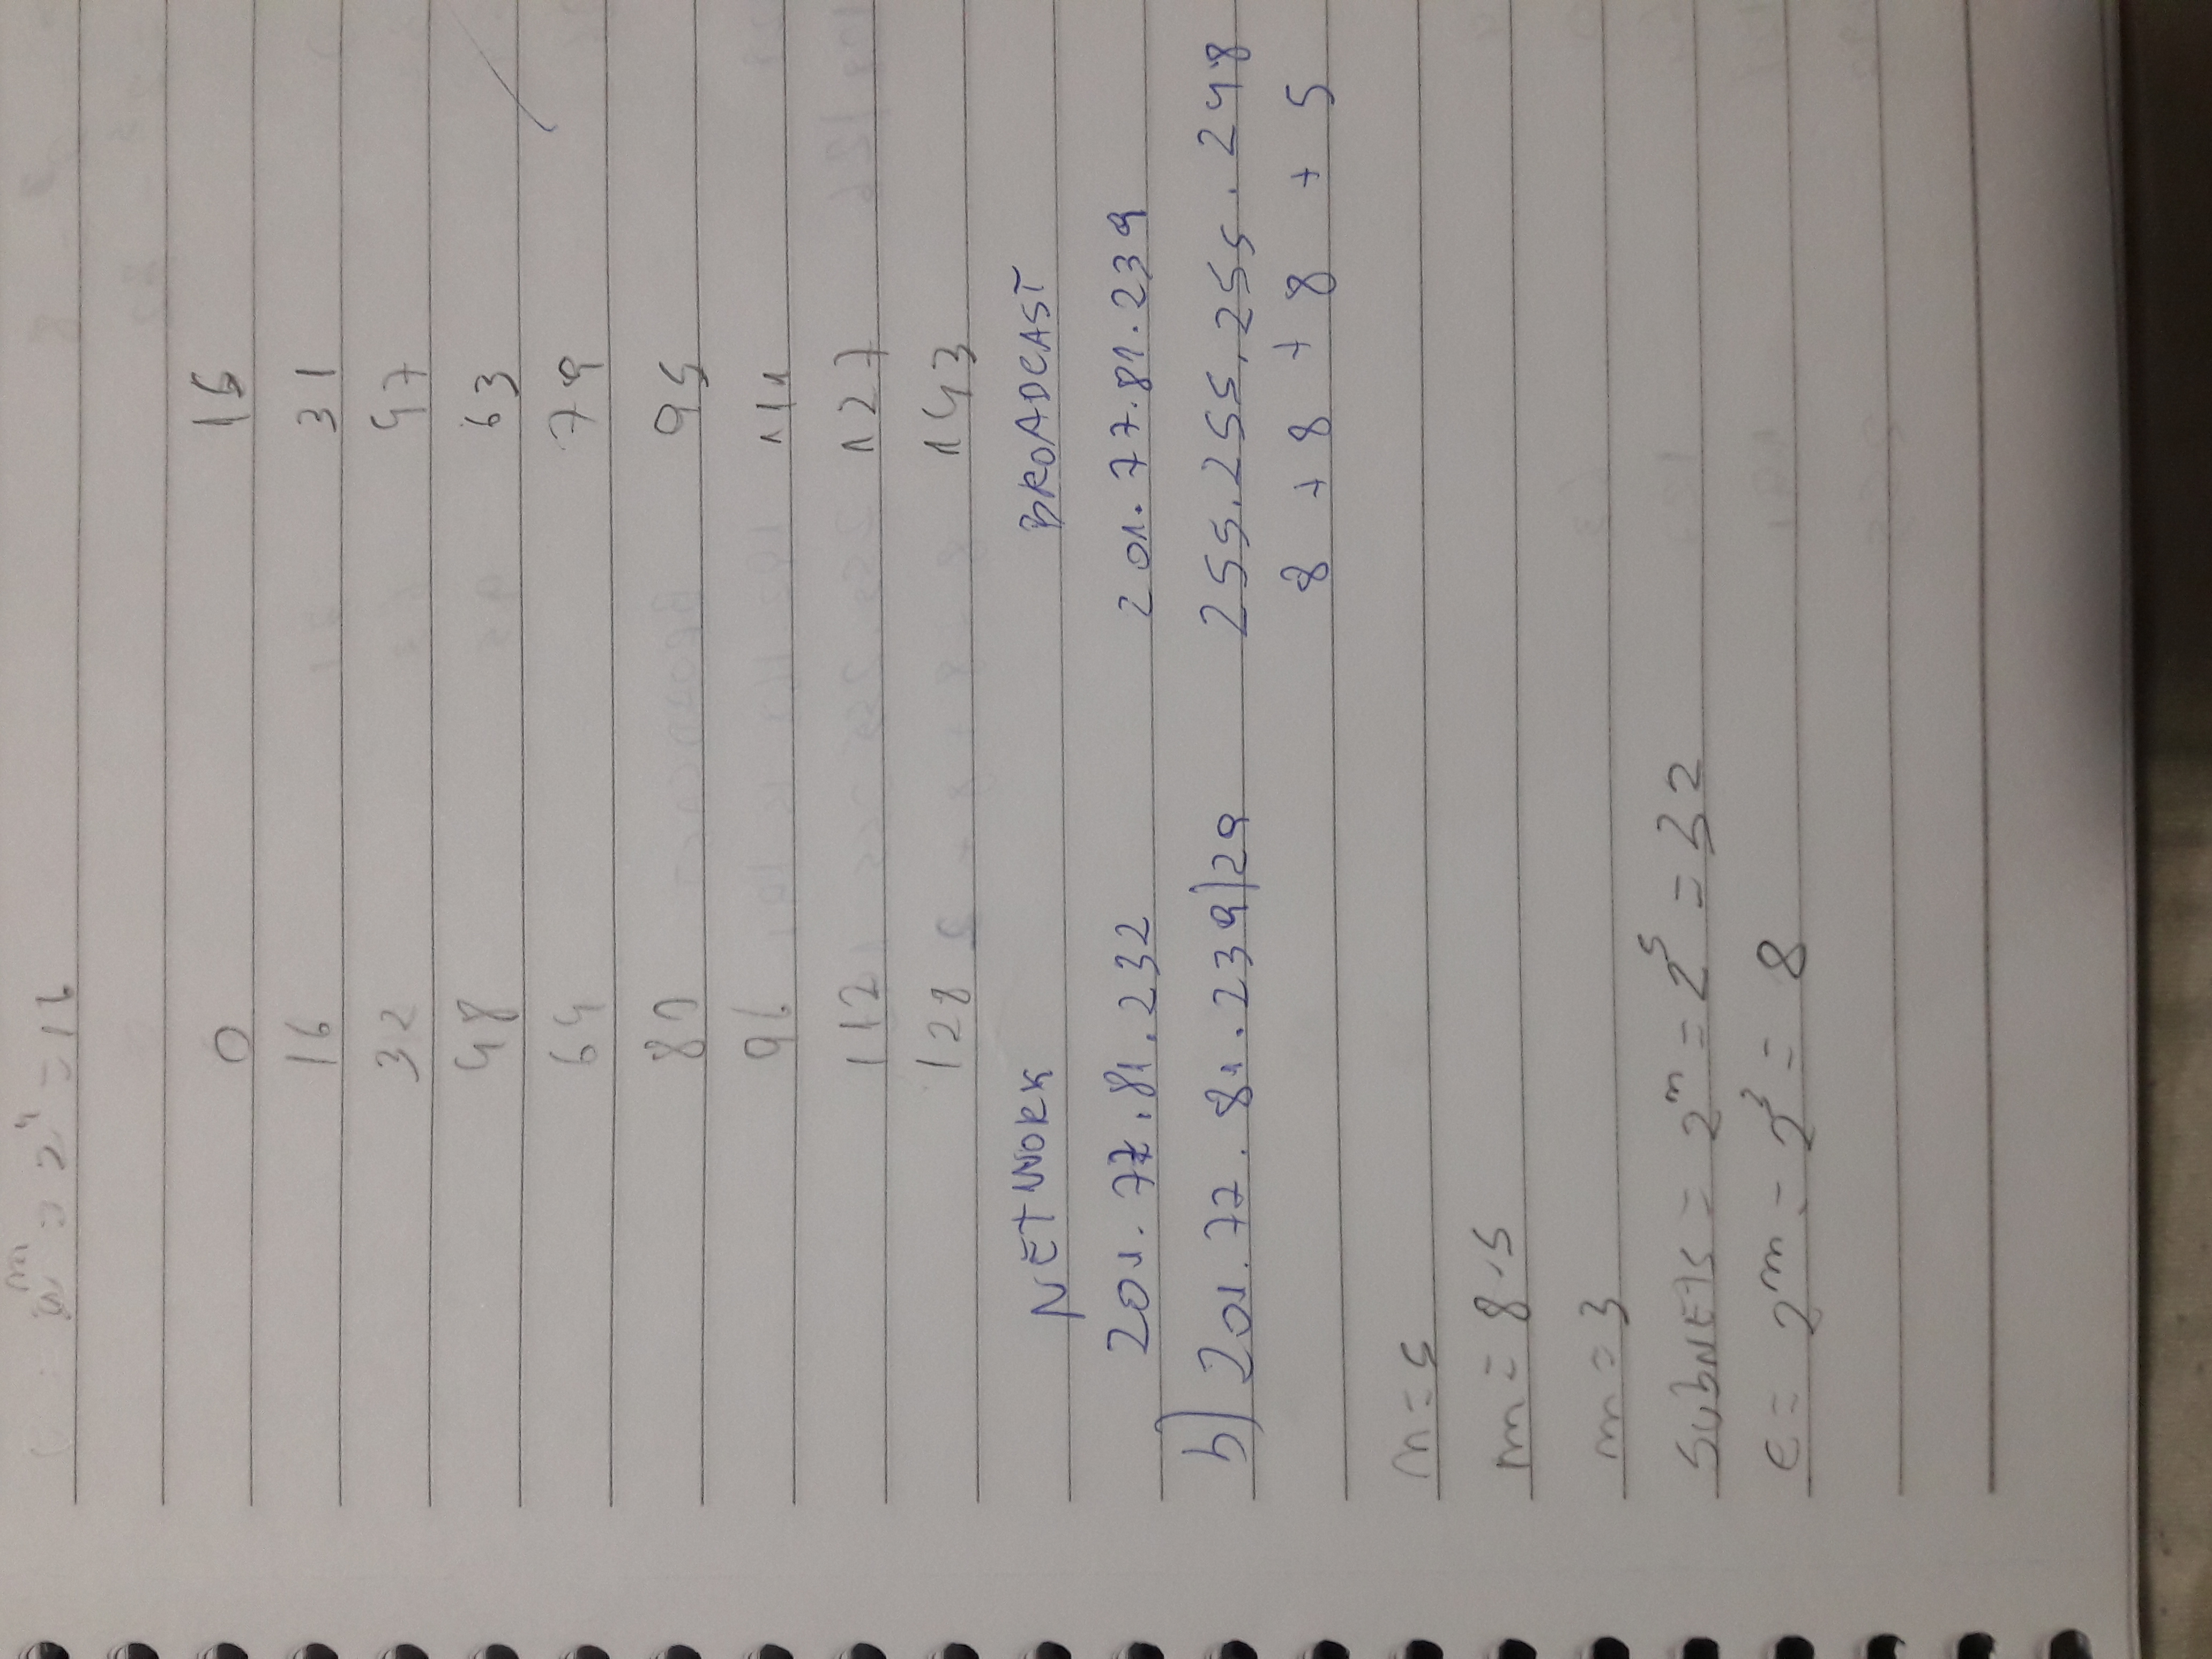 = 2⁴ = 16
0 15
16 31
32 47
48 63
64 79
80 95
96 111
112 127
128 143
NETWORK BROADCAST
201.77.81.232 201.77.81.239
b) 201.77.81.239/29 255.255.255.248
8 + 8 + 8 + 5
n = 5
m = 8-5
m = 3
SUBNETS = 2ⁿ = 2⁵ = 32
e = 2ᵐ = 2³ = 8